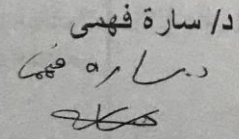 د/ سارة فهمى
د. ساره فهمى